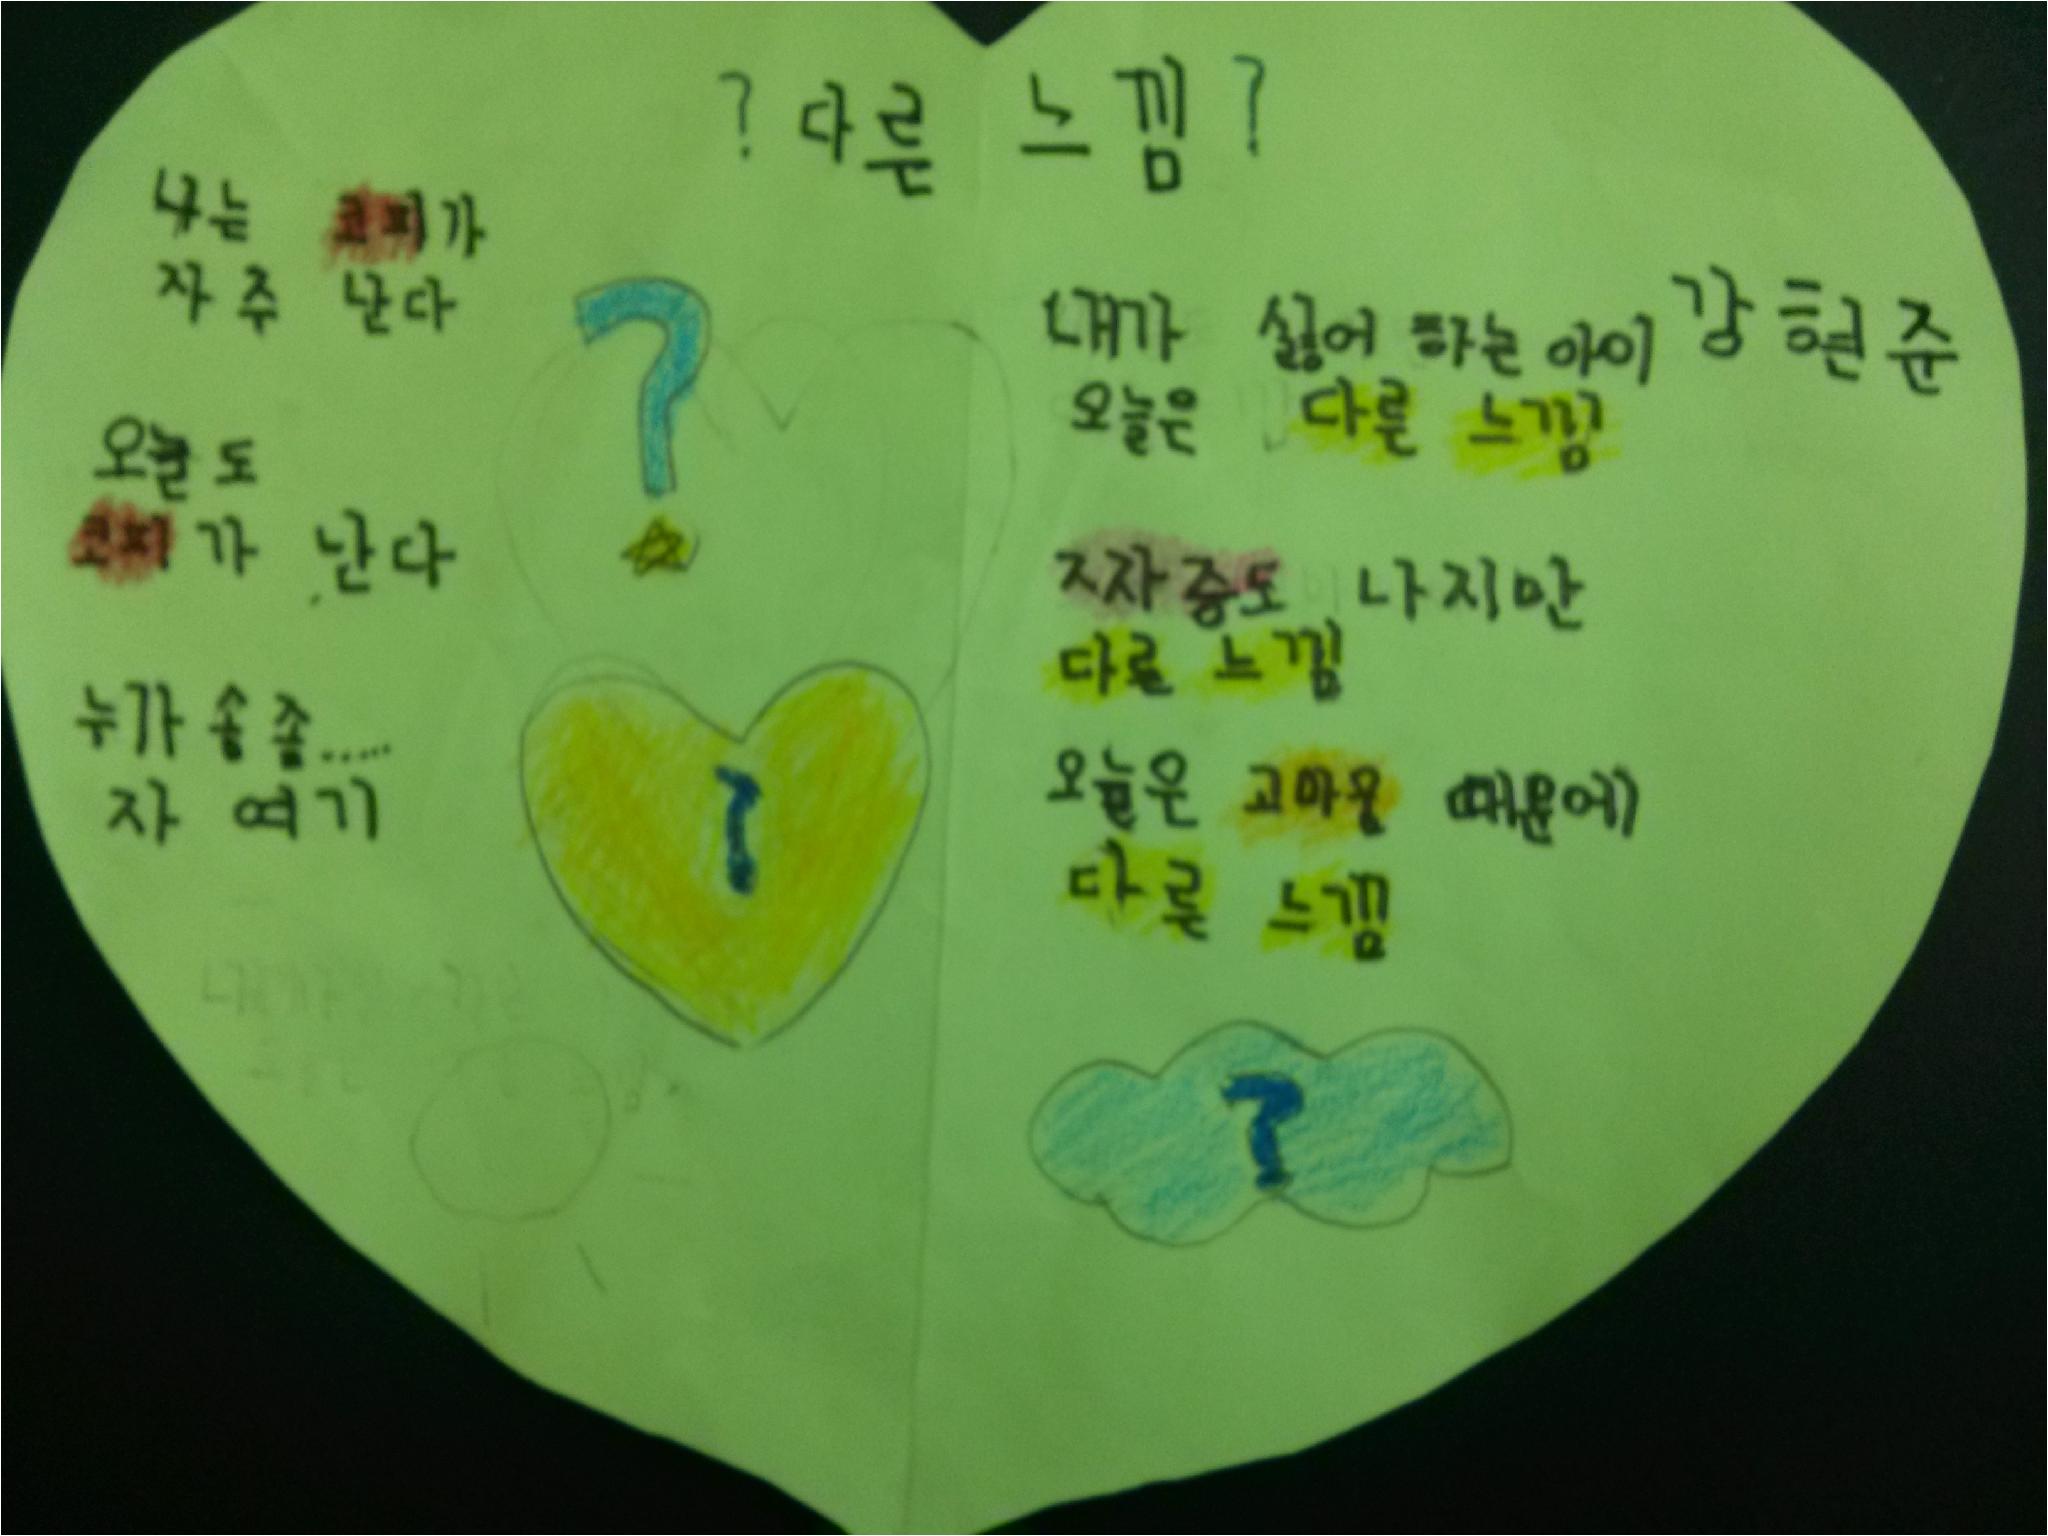 ? 다른 느낌 ?
나는 코피가
자주 난다
오늘도
코피가 난다
누가 송좀.....
자 여기
내가 싫어 하는 아이 강현준
오늘은 다른 느낌
짜증도 나지만
다른 느낌
오늘은 고마움 때문에
다른 느낌
?
?
?